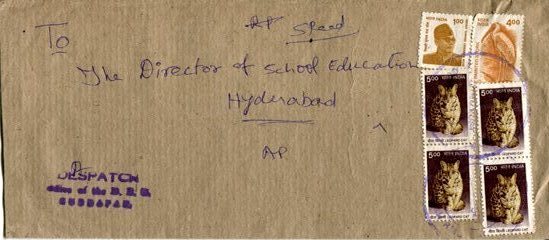 To
Speed
The Director of School Education
Hyderabad
AP
DESPATCH
Office of the D. E. O.
CUDDAPAH.
भारत INDIA
1.00
भारत INDIA
4.00
5.00 भारत INDIA
LEOPARD CAT
5.00 भारत INDIA
LEOPARD CAT
5.00 भारत INDIA
LEOPARD CAT
5.00 भारत INDIA
LEOPARD CAT